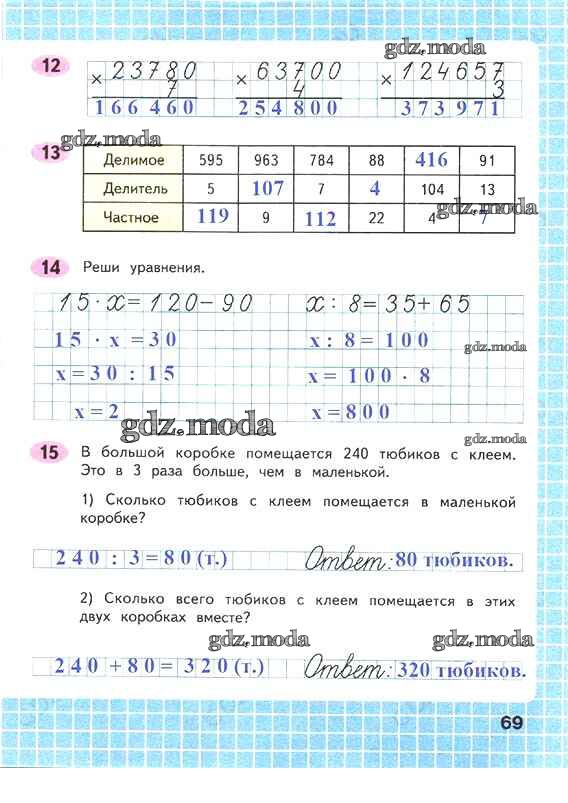 gdz.moda
12
×23780 ×63700 ×124657
7 4 3
166460 254800 373971
gdz.moda
13
Делимое 595 963 784 88 416 91
Делитель 5 107 7 4 104 13
Частное 119 9 112 22 4 7
gdz.moda
14 Реши уравнения.
15·x=120-90 x:8=35+65
15·x=30 x:8=100
gdz.moda
x=30:15 x=100·8
x=2 x=800
gdz.moda
gdz.moda
15 В большой коробке помещается 240 тюбиков с клеем.
Это в 3 раза больше, чем в маленькой.
1) Сколько тюбиков с клеем помещается в маленькой
коробке?
240:3=80(т.) Ответ: 80 тюбиков.
2) Сколько всего тюбиков с клеем помещается в этих
двух коробках вместе?
gdz.moda gdz.moda
240+80=320(т.) Ответ: 320 тюбиков.
69